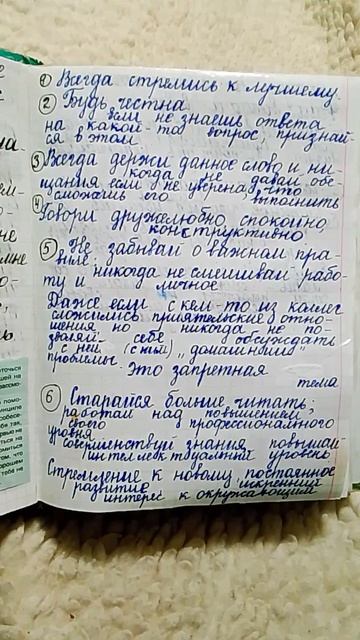 1 Всегда стремись к лучшему
2 Будь честна
если не знаешь ответа
на какой-то вопрос, признай-
ся в этом
3 Всегда держи данное слово и ни-
когда не давай обе-
щания если не уверена, что
сможешь его выполнить
4 Говори дружелюбно, спокойно
конструктивно
5 Не забывай о важном пра-
виле:
и никогда не смешивай рабо-
ту и личное
Даже если с кем-то из коллег
сложились приятельские отно-
шения но никогда не по-
зволяй себе обсуждать
с ней (с тем) „домашние"
проблемы. Это запретная
тема
6 Старайся больше читать;
работай над повышением
своего профессионального
уровня
совершенствуй знания повышай
интеллектуальный уровень
Стремление к новому постоянное
развитие искренний
интерес к окружающим